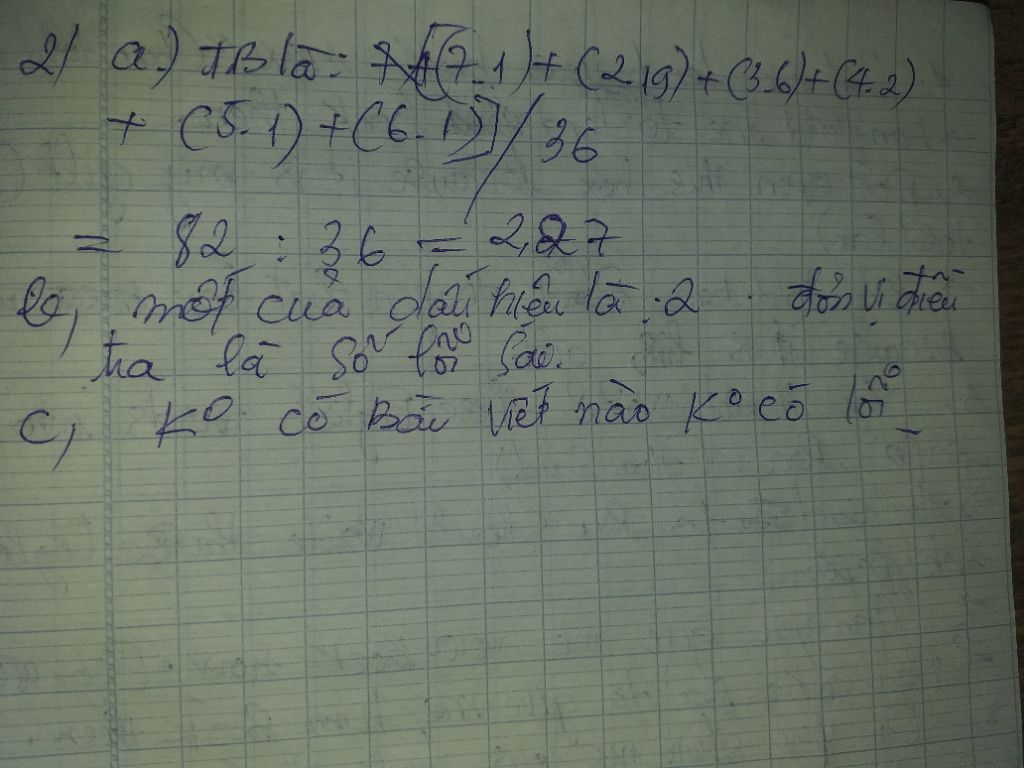 2/ a.) TB là: [(7.1) + (2.19) + (3.6) + (4.2)
+ (5.1) + (6.1)] / 36
= 82 : 36 = 2,27
b, mốt của dấu hiệu là : 2 . đơn vị điều
tra là số lỗi sao.
c, K⁰ có Bài viết nào K⁰ có lỗi